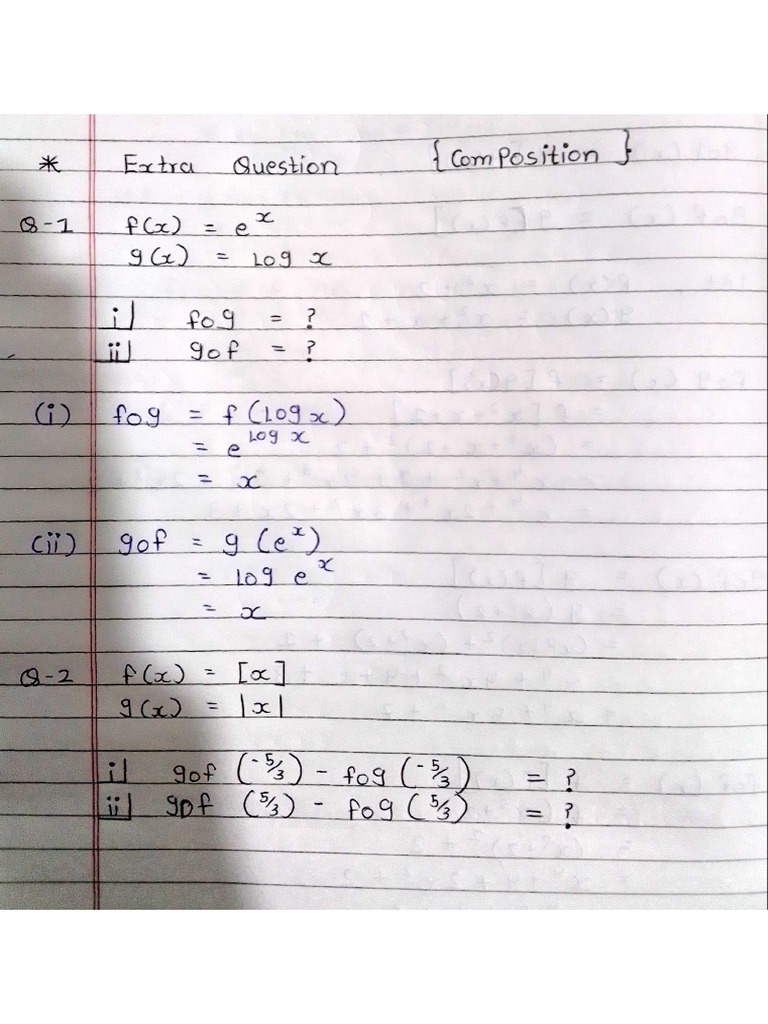 * Extra Question {Composition}
Q-1 f(x) = e^x
g(x) = log x
i] fog = ?
ii] gof = ?
(i) fog = f(log x)
= e^log x
= x
(ii) gof = g (e^x)
= log e^x
= x
Q-2 f(x) = [x]
g(x) = |x|
i] gof (-5/3) - fog (-5/3) = ?
ii] gof (5/3) - fog (5/3) = ?